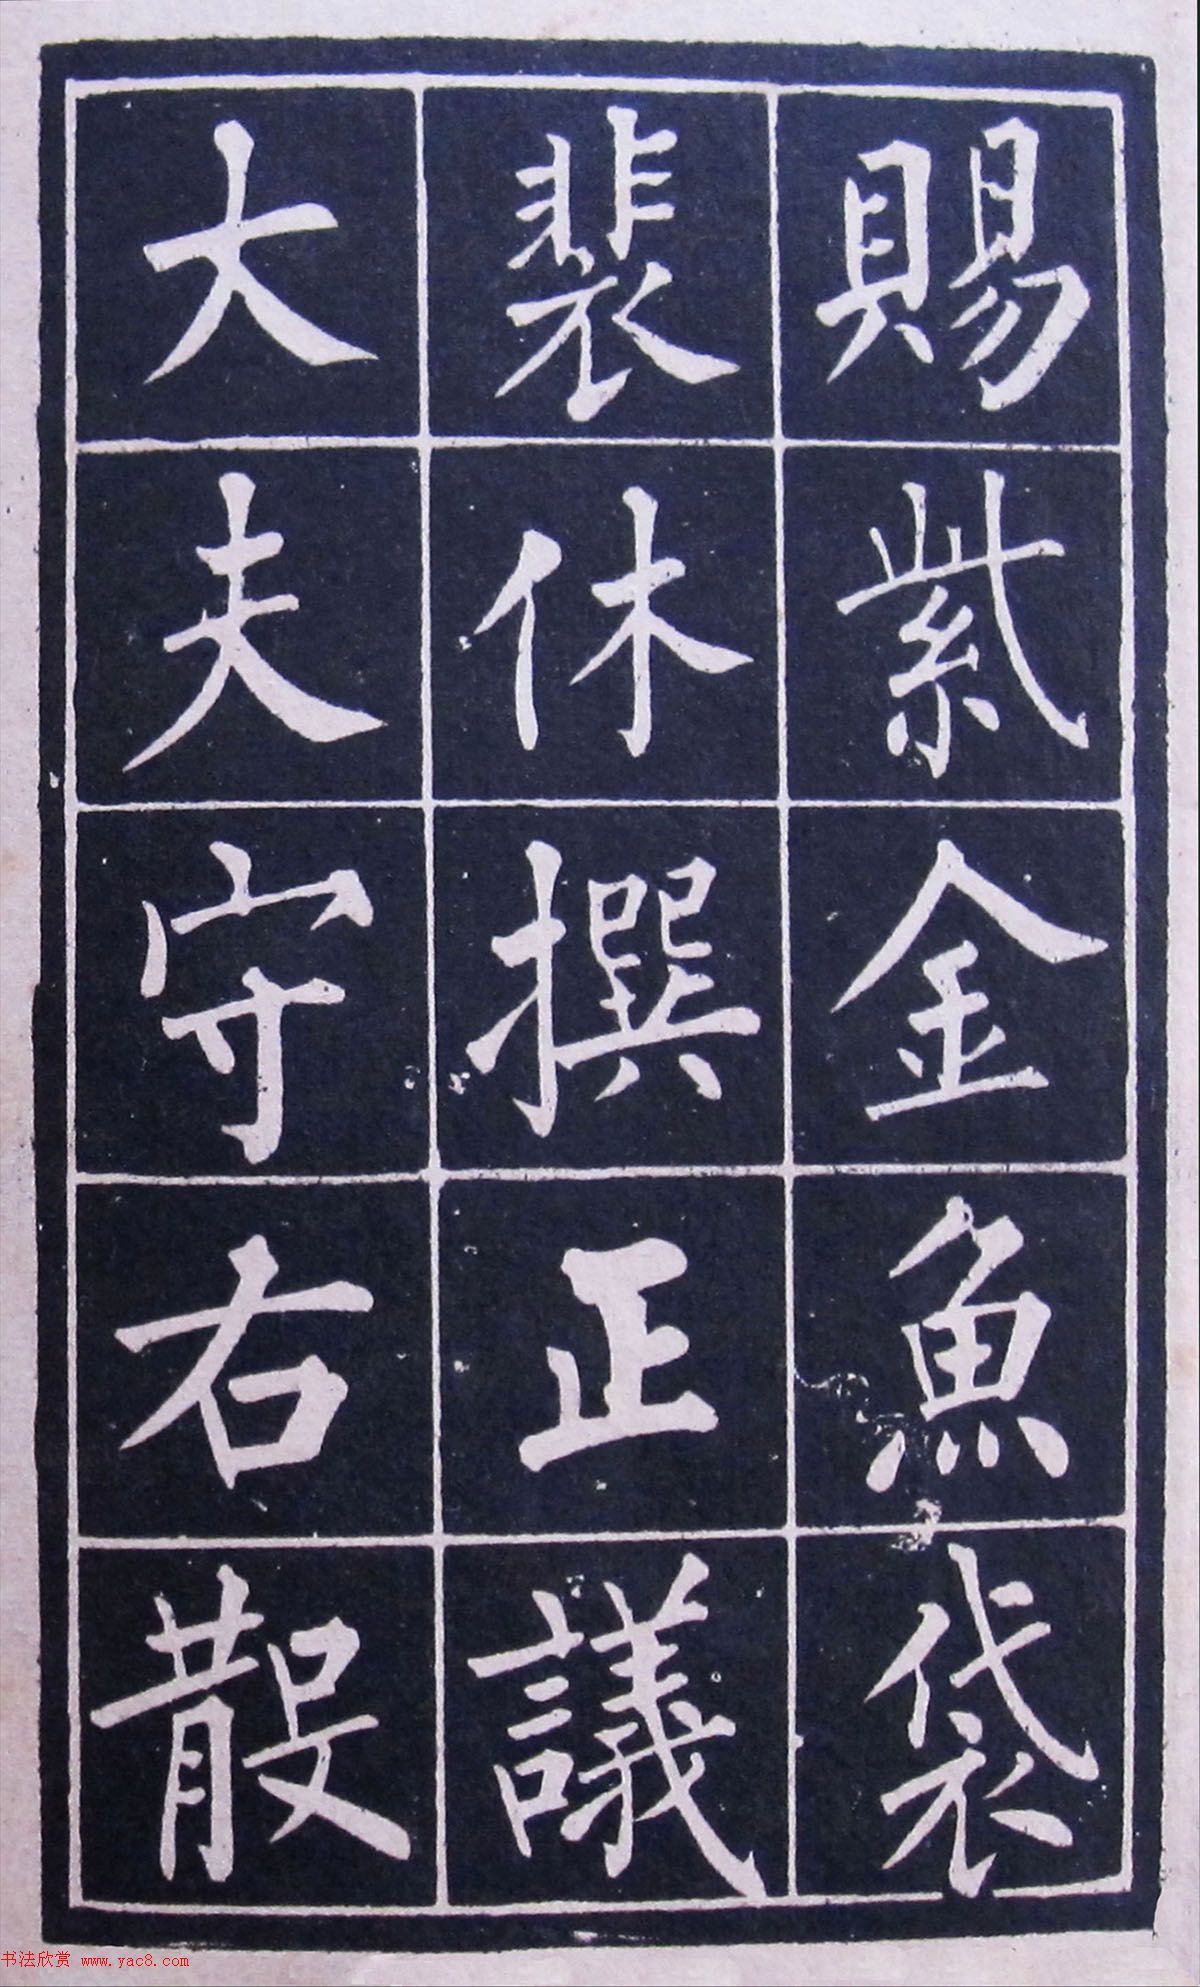 賜紫金魚袋
裴休撰正議
大夫守右散
书法欣赏 www.yac8.com